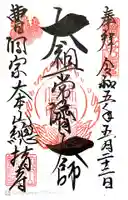 奉拝 令和五年五月二十二日
太祖常濟大師
曹洞宗大本山總持寺